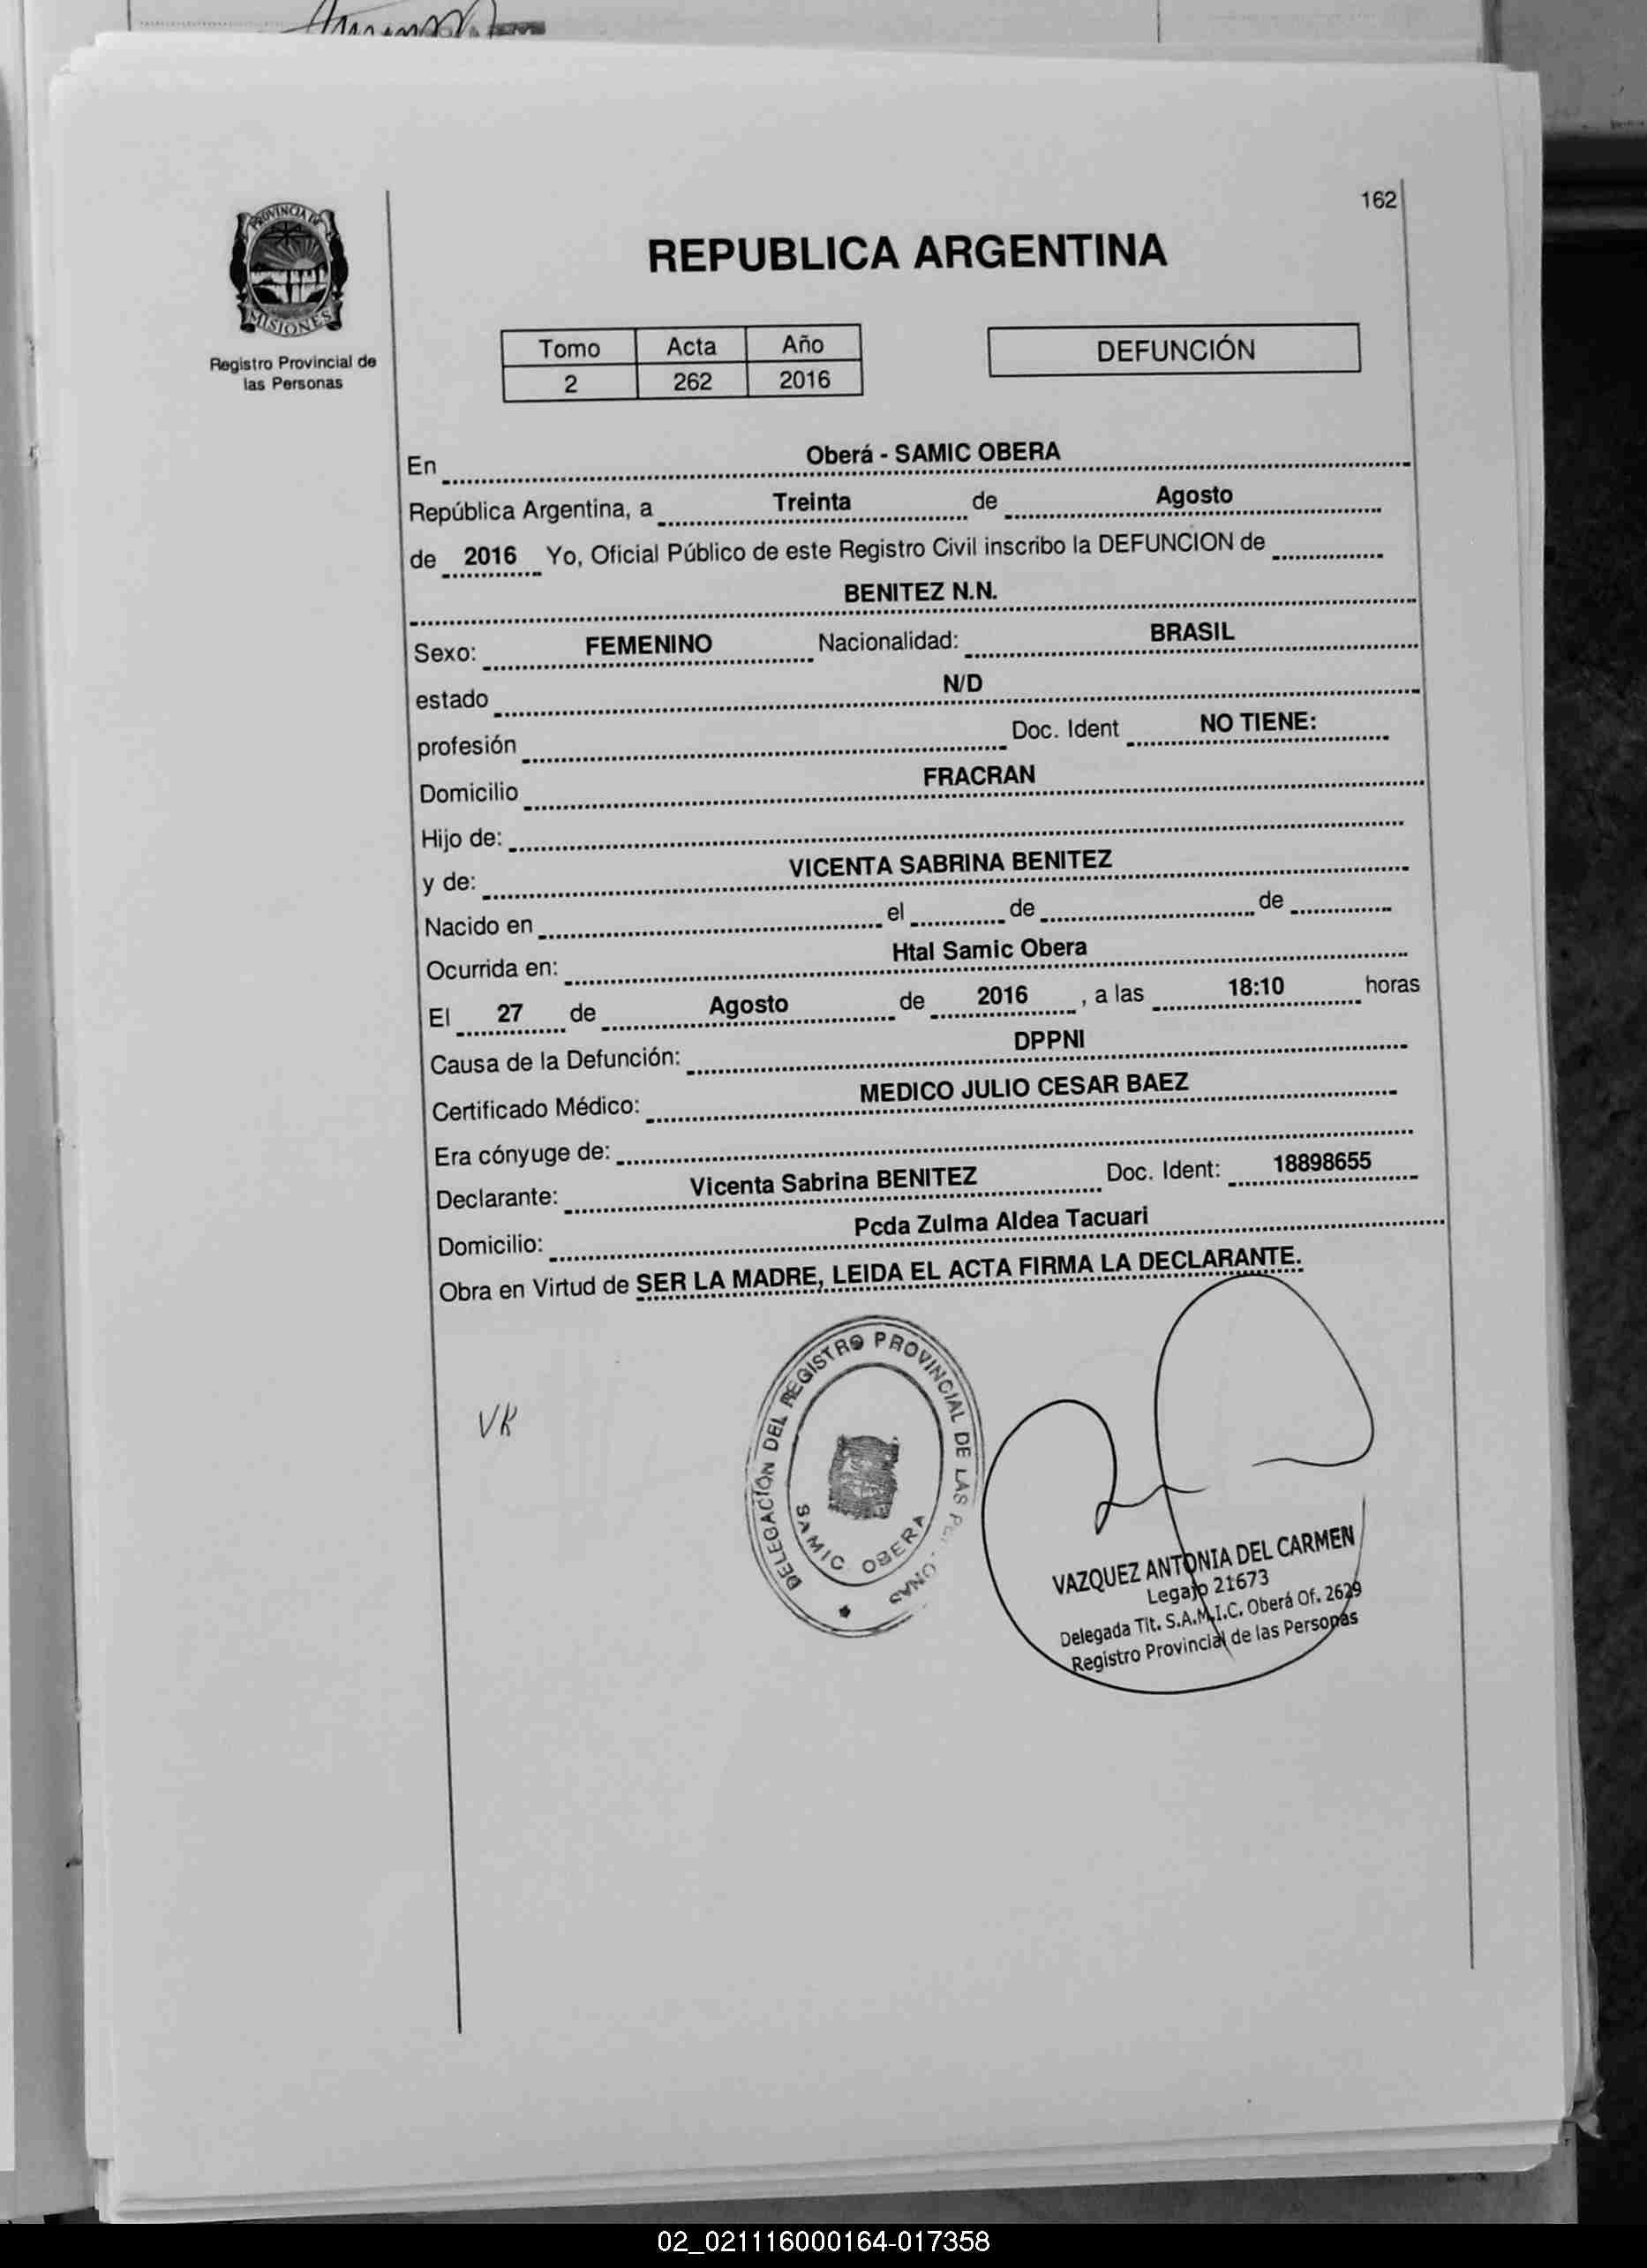 162
PROVINCIA DE
MISIONES
Registro Provincial de
las Personas
REPUBLICA ARGENTINA
Tomo Acta Año
2 262 2016
DEFUNCIÓN
En Oberá - SAMIC OBERA
República Argentina, a Treinta de Agosto
de 2016 Yo, Oficial Público de este Registro Civil inscribo la DEFUNCION de
BENITEZ N.N.
Sexo: FEMENINO Nacionalidad: BRASIL
estado N/D
profesión Doc. Ident NO TIENE:
Domicilio FRACRAN
Hijo de:
y de: VICENTA SABRINA BENITEZ
Nacido en el de de
Ocurrida en: Htal Samic Obera
El 27 de Agosto de 2016 , a las 18:10 horas
Causa de la Defunción: DPPNI
Certificado Médico: MEDICO JULIO CESAR BAEZ
Era cónyuge de:
Declarante: Vicenta Sabrina BENITEZ Doc. Ident: 18898655
Domicilio: Pcda Zulma Aldea Tacuari
Obra en Virtud de SER LA MADRE, LEIDA EL ACTA FIRMA LA DECLARANTE.
VR
DELEGACIÓN DEL REGISTRO PROVINCIAL DE LAS
SAMIC OBERA
VAZQUEZ ANTONIA DEL CARMEN
Legajo 21673
Delegada Tit. S.A.M.I.C. Oberá Of. 2629
Registro Provincial de las Personas
02_021116000164-017358